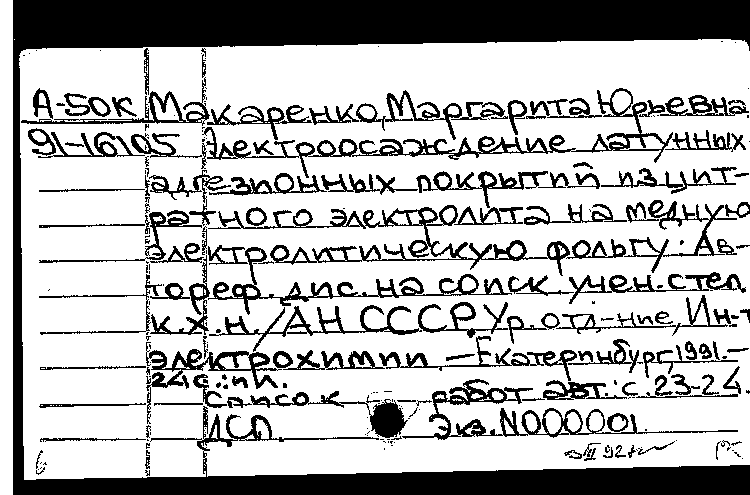 А-50к Макаренко, Маргарита Юрьевна
91-16105 Электроосаждение латунных
адгезионных покрытий из цит-
ратного электролита на медную
электролитическую фольгу: Ав-
тореф. дис. на соиск. учен. степ.
к.х.н. / АН СССР. Ур. отд-ние, Ин-т
электрохимии. — Екатеринбург, 1991. —
24с.: ил.
Список работ авт.: с. 23-24.
ДСП. Экз. N000001.
III 92
6